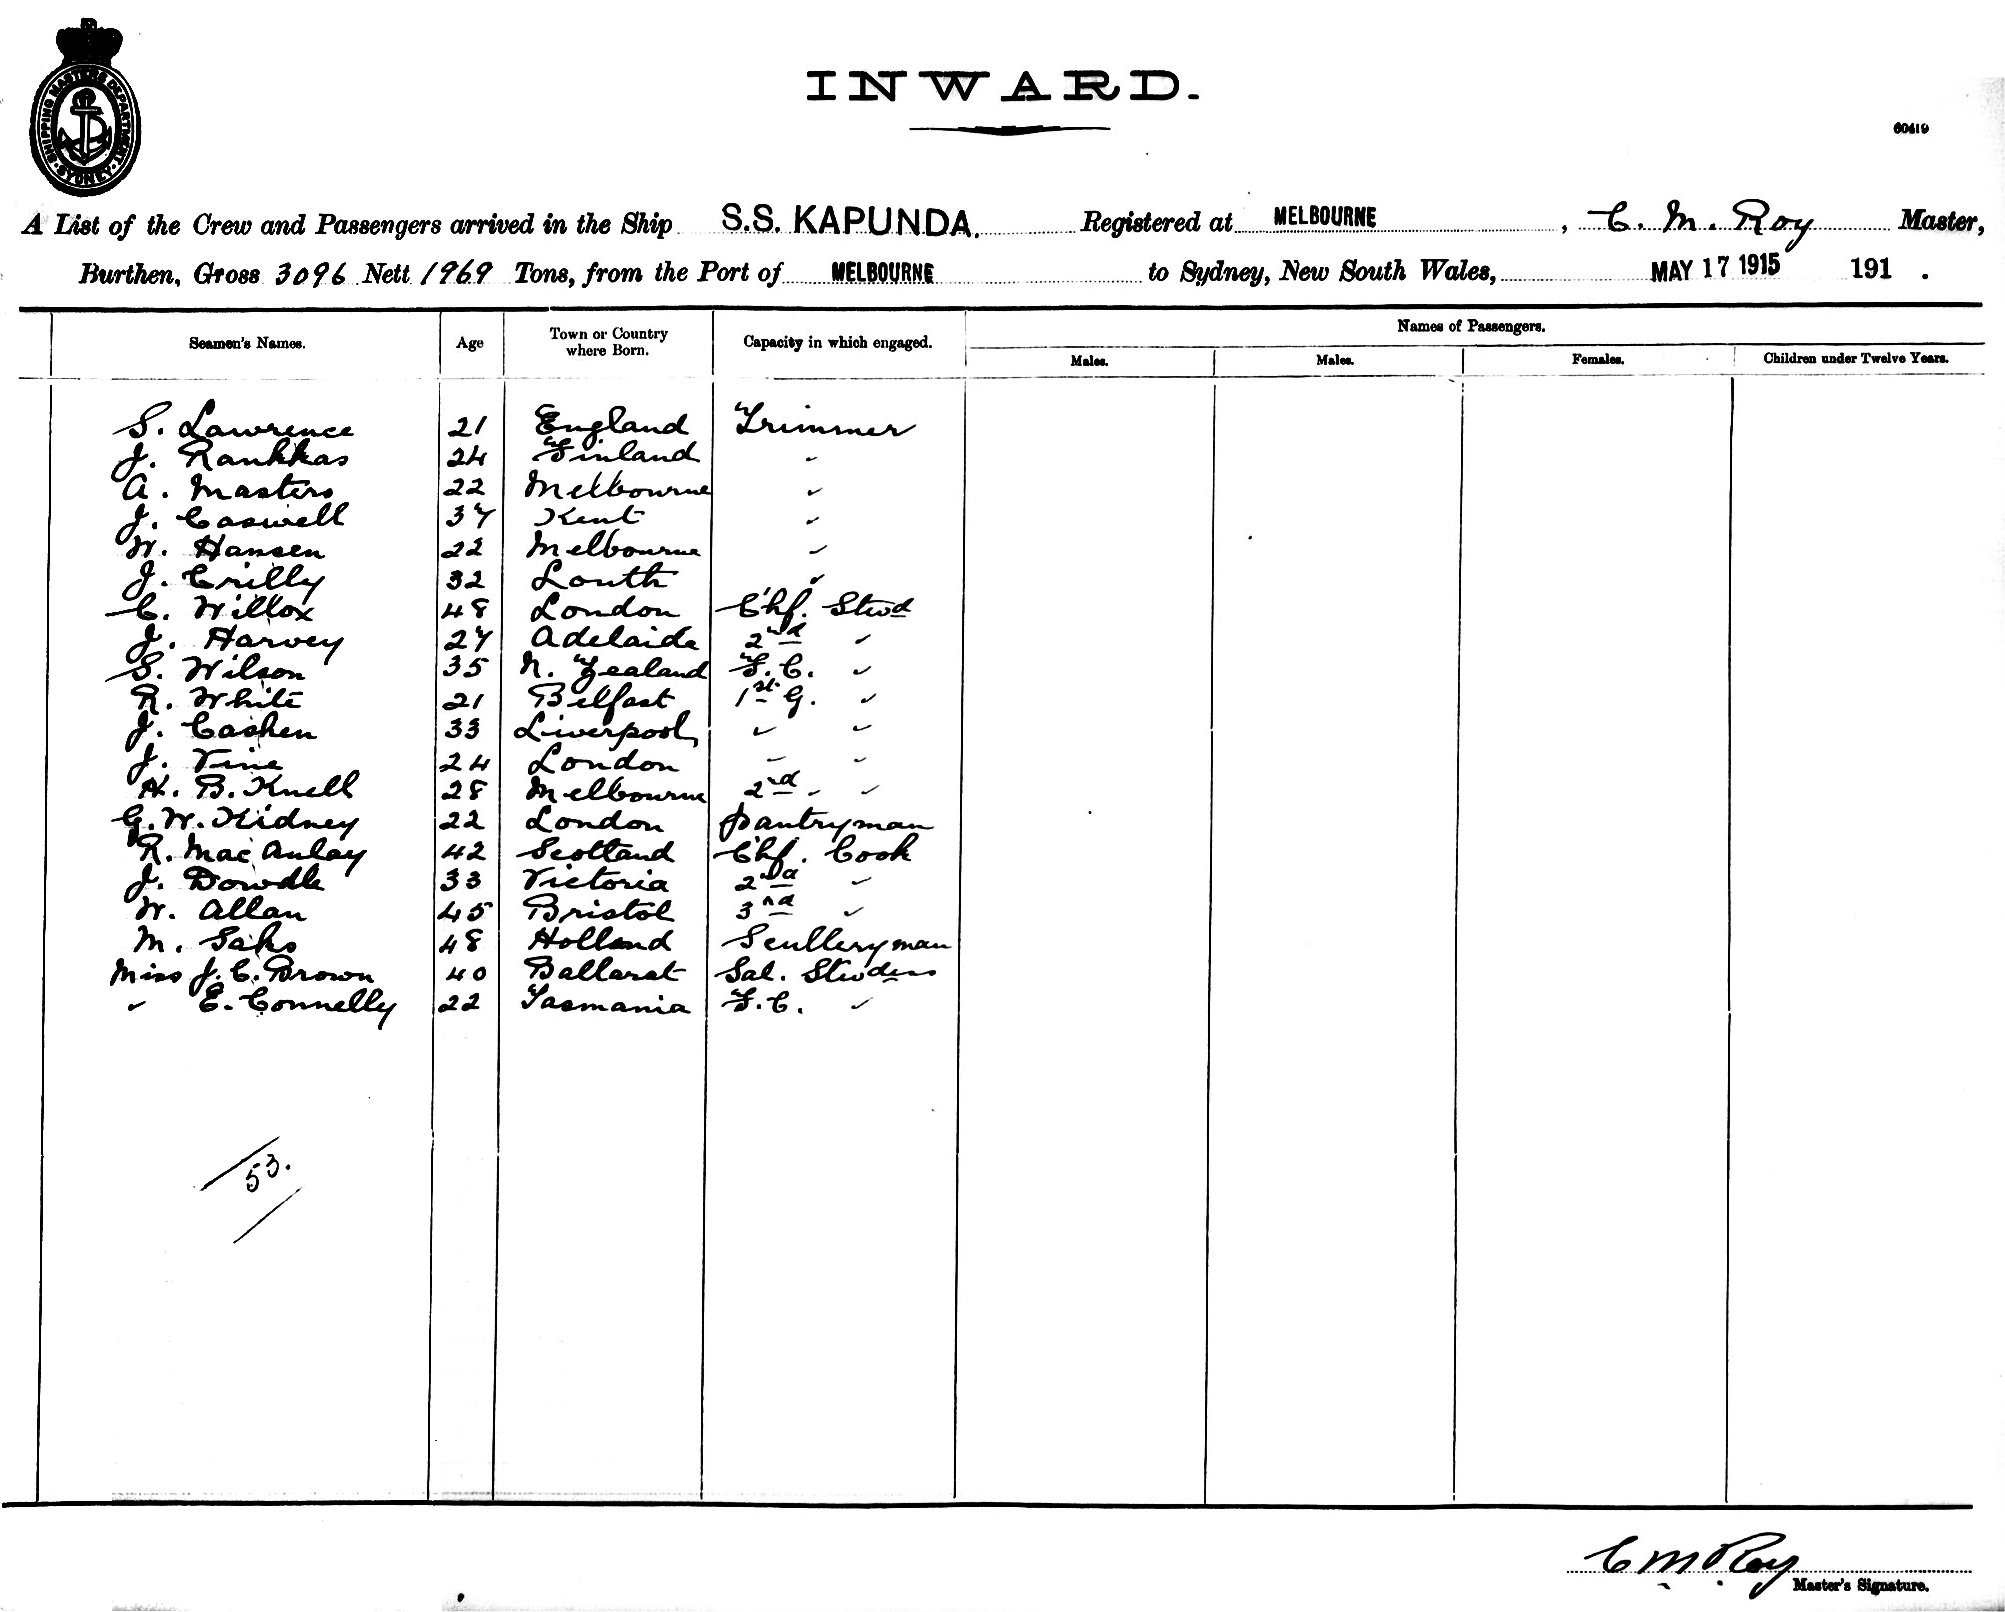 SHIPPING MASTERS DEPARTMENT
SYDNEY
INWARD.
60419
A List of the Crew and Passengers arrived in the Ship S.S. KAPUNDA. Registered at MELBOURNE, C. M. Roy Master,
Burthen, Gross 3096 Nett 1969 Tons, from the Port of MELBOURNE to Sydney, New South Wales, MAY 17 1915 191 .
Names of Passengers.
Seamen's Names. Age Town or Country where Born. Capacity in which engaged. Males. Males. Females. Children under Twelve Years.
S. Lawrence 21 England Trimmer
J. Rankkas 24 Finland "
A. Masters 22 Melbourne "
J. Caswell 37 Kent "
W. Hansen 22 Melbourne "
J. Crilly 32 Louth "
C. Willox 48 London Chf. Stwd
J. Harvey 27 Adelaide 2nd "
S. Wilson 35 N. Zealand F.C. "
R. White 21 Belfast 1st G. "
J. Cashen 33 Liverpool " "
J. Vine 24 London " "
H. B. Knell 28 Melbourne 2nd " "
G. W. Kidney 22 London Pantryman
R. MacAulay 42 Scotland Chf. Cook
J. Dowdle 33 Victoria 2nd "
W. Allan 45 Bristol 3rd "
M. Saks 48 Holland Sculleryman
Miss J. C. Brown 40 Ballarat Sal. Stwdess
" E. Connelly 22 Tasmania F.C. "
53.
C M Roy
Master's Signature.